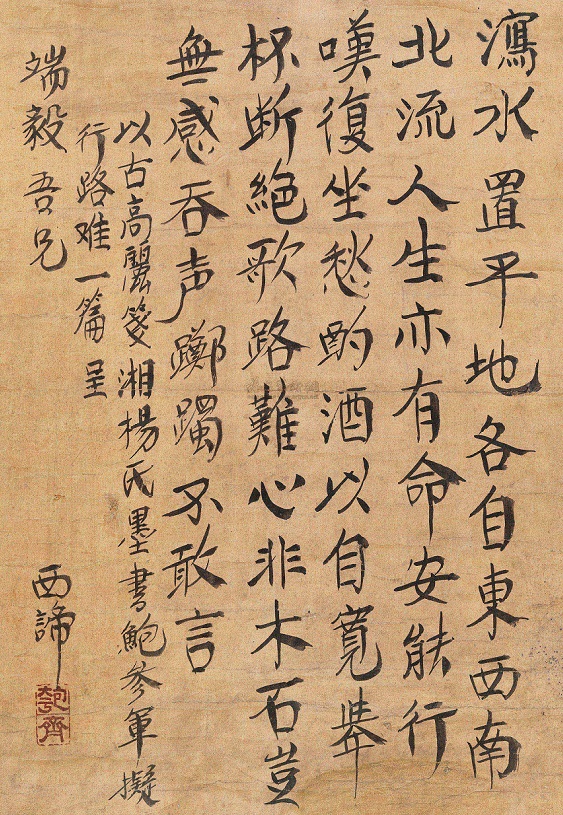 瀉水置平地各自東西南
北流人生亦有命安能行
嘆復坐愁酌酒以自寬舉
杯断絕歌路難心非木石豈
無感吞声躑躅不敢言
以古高麗箋湘楊氏墨書鮑參軍擬
行路难一篇呈
端毅吾兄
西諦